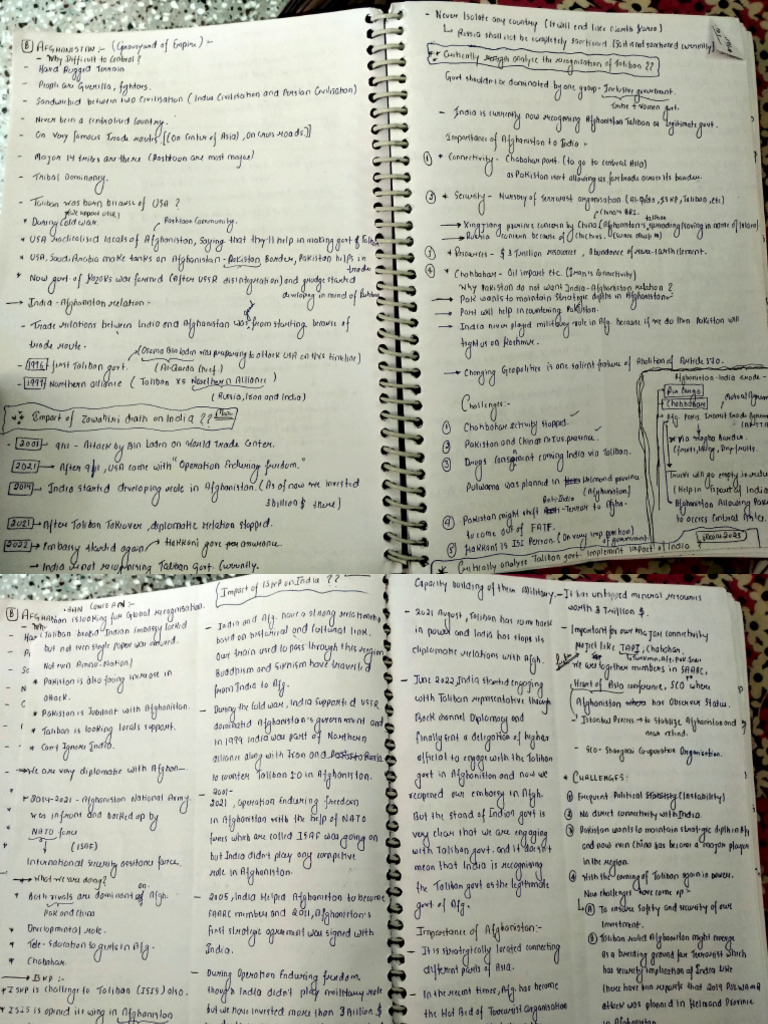 (B) AFGHANISTAN :- (Graveyard of Empire) :-
- Why Difficult to Control ?
- Hard Rugged Terrain
- People are Guerilla, fighters.
- Sandwiched between two Civilisation ( India Civilisation and Persian Civilisation)
- Never been a centralised Country.
- On Very famous Trade routes [(On Center of Asia) , on cross roads.)]
- Major 14 tribs are there (Pashtoon are most major)
- Tribal Dominancy.
- Taliban was born because of USA ?
* During Cold war Pashtoon Community.
* USA radicalised locals of Afghanistan, Saying that they'll help in making govt of Taliban
* USA, Saudi Arabia make tanks on Afghanistan - Pakistan Border, Pakistan helps in
* Now govt of was formed (After USSR disintegration) and grudge started
developing in mind of
→ India - Afghanistan relation -
- Trade relations between India and Afghanistan was from starting because of
trade route.
(Osama Bin Laden was preparing to attack USA on this timeline)
- 1996 first Taliban govt. (Al-Qaeda Chief)
- 1999 Northern alliance ( Taliban vs Northern Alliance)
(Russia, Iran and India)
** Impact of Zawahiri death on India ??
- 2001 9/11 - Attack by Bin Laden on World Trade Center.
- 2021 → After 9/11, USA come with "Operation Enduring freedom."
- 2014 → India started developing role in Afghanistan. (As of now we invested
3 billion $ there)
- 2021 → After Taliban Takeover, diplomatic relation stopped.
- 2022 → Embassy started again → Hakkani gave perassurance.
→ India is not recognising Taliban Govt. Currently.
- Never Isolate any country (It will end like North Korea)
↳ Russia shall not be completely sanctioned
** Critically analyse the recognisation of Taliban ??
Govt shouldn't be dominated by one group - Inclusive government.
Tribe + Women govt.
- India is currently now recognising Afghanistan Taliban as legitimate govt.
Importance of Afghanistan to India -
(1) * Connectivity - Chabahar port. (to go to central Asia)
as Pakistan isn't allowing as for trade across its border.
(2) * Security - Nursery of terrorist organisation (Al-Qaeda, ISKP, Taliban, etc)
(China's BRI.
→ Xingjiang province concern by China (Afghanistan's spreading in name of Islam)
→ Russia concern because of Chechens.
(3) * Resources - $ 3 Trillion resources , Abundance of rare-earth element.
(4) * Chabahar - Oil impact etc. (Iran's Connectivity)
Why Pakistan do not want India-Afghanistan relation ?
→ Pak wants to maintain strategic depth in Afghanistan.
→ Port will help in countering Pakistan.
→ India never played military role in Afg. because if we do then Pakistan will
fight us on Kashmir.
→ Changing Geopolitics is one salient feature of Abolition of Article 370.
Challenges :-
(1) Chabahar activity stopped.
(2) Pakistan and China nexus presence.
(3) Drugs consignment coming India via Taliban.
Pulwama was planned in Helmand province
(Afghanistan)
(4) Pakistan might shift Anti-India Terror to Afgha.
to come out of FATF.
(5) Hakkani is ISI Person. (On very imp position)
of government
* Critically analyse Taliban govt. implement impact of India ?
Afghanistan-India trade -
Chabahar
→ Via Wagha Border.
(fruits, Hing, Dry fruits.
Trucks will go empty in return
(Help in export of India)
Afghanistan Allowing Pak
to access Central Asia.
(B) AFGHANISTAN
Afghan is looking for Global recognisation.
Taliban broke Indian Embassy locked
but not even single paper was moved.
Not even Arms-National
* Pakistan is also facing increase in
attack.
* Pakistan is Jubilant with Afghanistan.
* Taliban is looking locals support.
* Can't Ignore India.
→ We are very diplomatic with Afghan-
* 2014-2021 - Afghanistan National Army
was infront and backed up by
NATO force
↓ (ISAF)
International security assistance force.
→ What we are doing ?
* Both rivals are dominant on Afgh.
Pak and China
* Developmental role.
* Tele-Education to girls in Afg.
* Chabahar.
→ ISKP :-
* ISKP is challenge to Taliban (ISIS) also.
* ISIS is opened its wing in Afghanistan
Impact of ISKP on India ??
- India and Afg. have a strong relationship
based on historical and cultural link.
Our train used to pass through this region
Buddhism and Sikhism have travelled
from India to Afg.
- During the Cold war, India supported USSR
dominated Afghanistan's government and
in 1999 India was part of Northern
alliance along with Iran and Russia
to counter Taliban 1.0 in Afghanistan.
- 2001-
2021, Operation Enduring freedom
in Afghanistan with the help of NATO
forces which are called ISAF was going on
but India didn't play any competive
role in Afghanistan.
- 2005, India Helped Afghanistan to become
SAARC member and 2011, Afghanistan's
first strategic agreement was signed with
India.
- During Operation Enduring freedom,
though India didn't play millitary role
but we have invested more than 3 Billion $
Capacity building of them Military.
- 2021 August, Taliban has come back
in power and India has stops its
diplomatic relations with Afgh.
- June 2022, India started engaging
with Taliban representative through
Back channel Diplomacy and
finally sent a delegation of higher
official to engage with the Taliban
govt in Afghanistan and now we
reopened our embassy in Afgh.
But the stand of Indian govt is
very clear that we are engaging
with Taliban govt. and it doesn't
mean that India is recognising
the Taliban govt as the legitimate
govt of Afg.
Importance of Afghanistan:-
- It is strategically located connecting
different parts of Asia.
- In the recent times, Afg. has become
the Hot Bed of Terrorist Organisation
- It has untapped mineral resources
worth 3 Trillion $.
- Important for our major connectivity
project like TAPI, Chabahar.
- We are together members in SAARC,
Heart of Asia conference, SCO where
Afghanistan has Observer Status.
- Istanbul Process → to stabilize Afghanistan and
- SCO - Shanghai Cooperation Organisation.
* CHALLENGES :
(1) Frequent Political (Instability)
(2) No direct connectivity with India.
(3) Pakistan wants to maintain strategic depth in Afg
and now even China has become a major player
in the region.
(4) With the coming of Taliban again in power.
New challenges have come up -
↳ (A) To insure Safety and security of our
investment.
(B) Taliban ruled Afghanistan might emerge
as a breeding ground for Terrorist which
has security implication of India like
there have been reports that 2019 PULWAMA
attack was planned in Helmand Province
in Afghanistan.